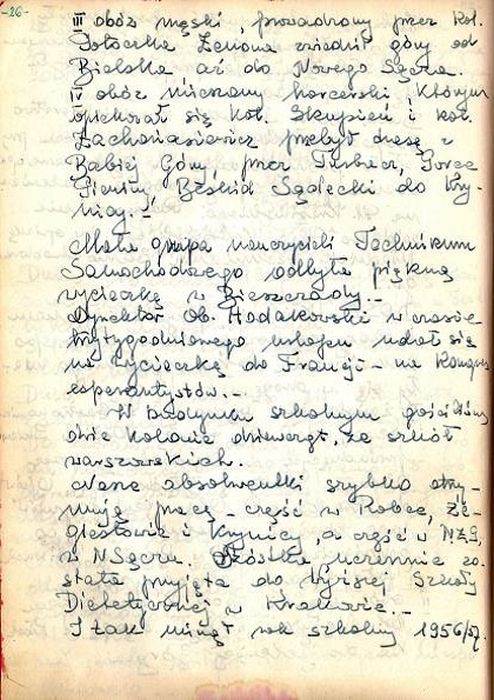 -26-
III obóz męski, prowadzony przez kol.
Potoczka Zenona zwiedził góry od
Bielska aż do Nowego Sącza.
IV obóz mieszany harcerski, którym
opiekował się kol. Skupień i kol.
Zachariasiewicz przebył trasę z
Babiej Góry, przez Turbacz, Gorce
Pieniny, Beskid Sądecki do Kry-
nicy.-
Mała grupa nauczycieli Technikum
Samochodowego odbyła piękną
wycieczkę w Bieszczady.-
Dyrektor Ob. Hodakowski w czasie
trzytygodniowego urlopu udał się
na wycieczkę do Francji - na Kongres
esperantystów.-
W budynku szkolnym gościliśmy
dwie kolonie dziewcząt, ze szkół
warszawskich.
Nasze absolwentki szybko otrzy-
mują pracę - część w Rabce, Że-
giestowie i Krynicy, a część w NZG,
w N Sączu. uczennic zo-
stała przyjęta do Wyższej Szkoły
Dietetycznej w Krakowie.-
I tak minął rok szkolny 1956/57.